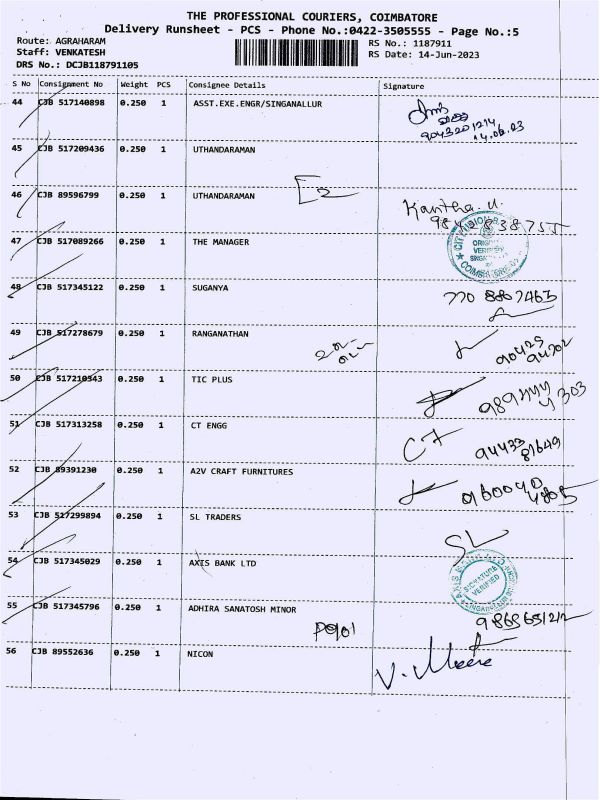 THE PROFESSIONAL COURIERS, COIMBATORE
Delivery Runsheet - PCS - Phone No.:0422-3505555 - Page No.:5
Route: AGRAHARAM RS No.: 1187911
Staff: VENKATESH RS Date: 14-Jun-2023
DRS No.: DCJB118791105
S No Consignment No Weight PCS Consignee Details Signature
44 CJB 517140898 0.250 1 ASST.EXE.ENGR/SINGANALLUR
9043201214
14.06.23
45 CJB 517209436 0.250 1 UTHANDARAMAN
46 CJB 89596799 0.250 1 UTHANDARAMAN
Kantha. U.
47 CJB 517089266 0.250 1 THE MANAGER
48 CJB 517345122 0.250 1 SUGANYA
770 8867463
49 CJB 517278679 0.250 1 RANGANATHAN
90429
94702
50 CJB 517210543 0.250 1 TIC PLUS
51 CJB 517313258 0.250 1 CT ENGG
CT 94433
81649
52 CJB 89391230 0.250 1 A2V CRAFT FURNITURES
53 CJB 517299894 0.250 1 SL TRADERS
SL
54 CJB 517345029 0.250 1 AXIS BANK LTD
SIGNATURE
VERIFIED
55 CJB 517345796 0.250 1 ADHIRA SANATOSH MINOR
56 CJB 89552636 0.250 1 NICON